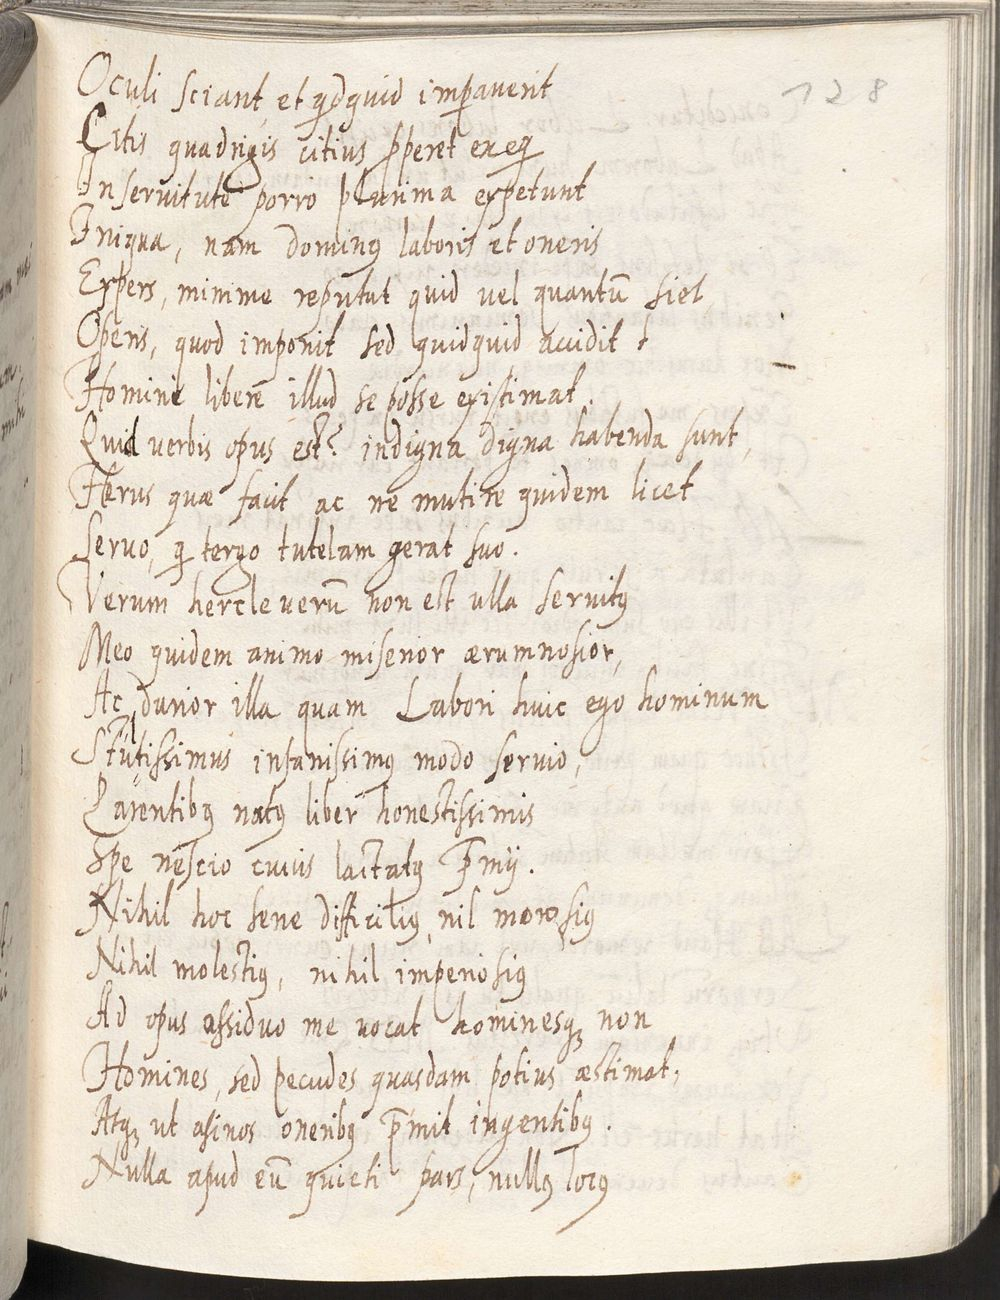 128
Oculi sciant, et qdquid impaverit
Citis quadrigis citius pperet exeq
In seruitute porro plurima expetunt
Iniqua, nam dominꝰ laboris et oneris
Expers, minime reputat quid vel quantū siet
Operis, quod imponit sed quidquid accidit
Homine liberē illud se posse existimat.
Quid verbis opus est? indigna digna habenda sunt,
Herus quæ facit ac ne mutire quidem licet
Seruo, q tergo tutelam gerat suo.
Verum hercle verū non est ulla seruitꝰ
Meo quidem animo miserior ærumnosior,
Ac durior illa quam Labori huic ego hominum
Stultissimus insanissimꝰ modo seruio,
Parentibꝰ natꝰ liber honestissimis
Spe nescio cuius lactatꝰ p̄mij.
Nihil hoc sene difficiliꝰ, nil morosiꝰ
Nihil molestiꝰ, nihil imperiosiꝰ
Ad opus assiduo me vocat hominesqꝫ non
Homines, sed pecudes quasdam potius æstimat,
Atqꝫ ut asinos oneribꝰ p̄mit ingentibꝰ.
Nulla apud eū quieti pars, nullꝰ locꝰ